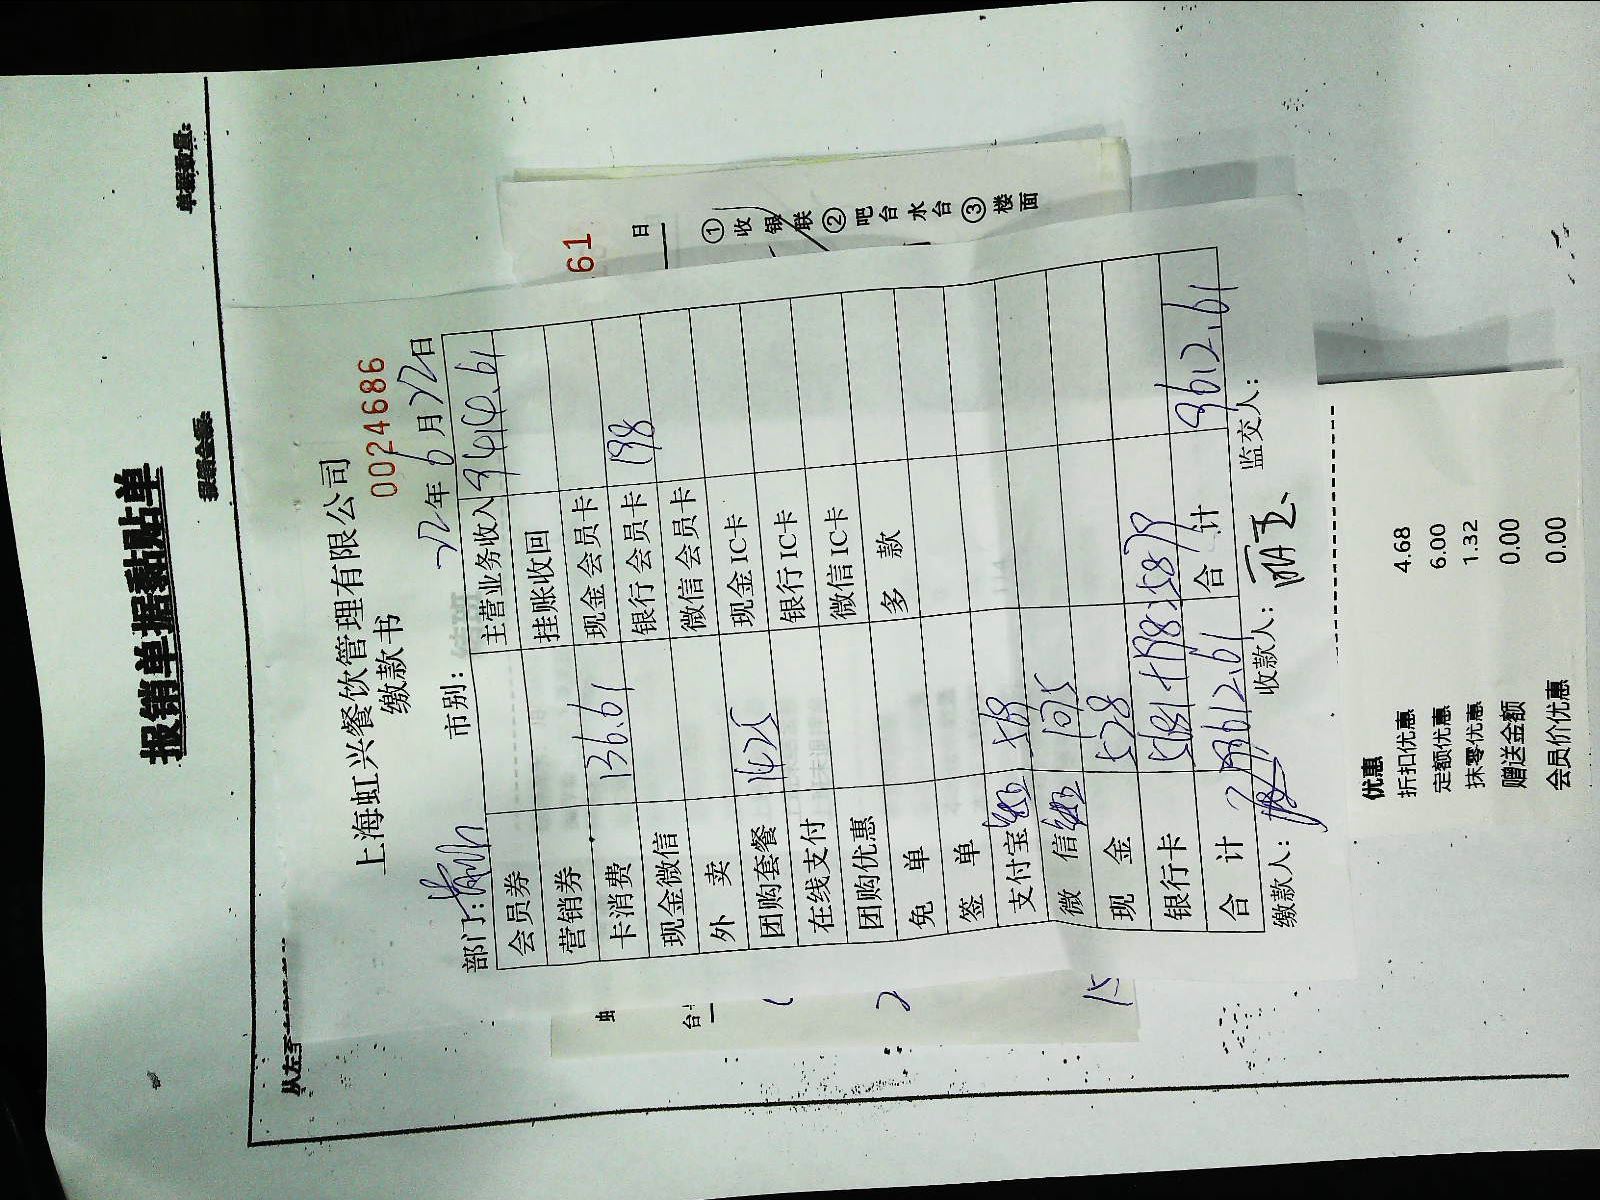 报销单据黏贴单
报销金额:
单据数量:
从左至
上海虹兴餐饮管理有限公司
缴款书
0024686
部门:
市别:
22年6月22日
会员券
主营业务收入 9414.61
营销券
挂账收回
卡消费 136.61
现金会员卡
现金微信
银行会员卡 198
外 卖
微信会员卡
团购套餐 1425
现金IC卡
在线支付
银行IC卡
团购优惠
微信IC卡
免 单
多 款
签 单
支付宝 569
微 信 1075
现 金 528
银行卡 5681+198=5879
合 计 9612.61
合 计 9612.61
缴款人:
收款人:
监交人:
61
日
①收银联②吧台水台③楼面
虹
台
1
2
15
优惠
折扣优惠 4.68
定额优惠 6.00
抹零优惠 1.32
赠送金额 0.00
会员价优惠 0.00